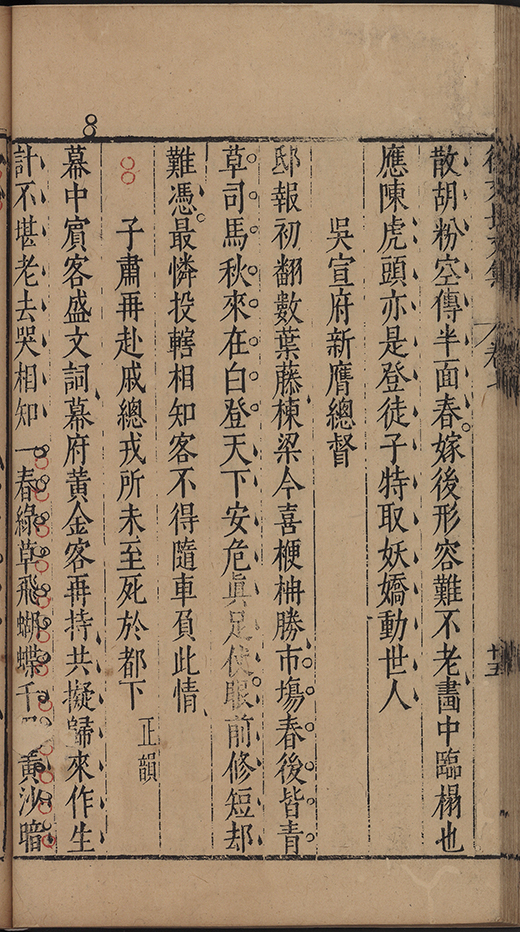 徐文長文集 卷七 十五
散胡粉空傳半面春嫁後形容難不老畫中臨榻也
應陳虎頭亦是登徒子特取妖嬌動世人
吳宣府新膺總督
邸報初翻數葉藤棟梁今喜楩柟勝市場春後皆青
草司馬秋來在白登天下安危眞足仗眼前修短却
難憑最憐投轄相知客不得隨車負此情
子肅再赴戚總戎所未至死於都下 正韻
幕中賓客盛文詞幕府黃金客再持共擬歸來作生
計不堪老去哭相知一春綠草飛蝴蝶千 黃沙暗
8